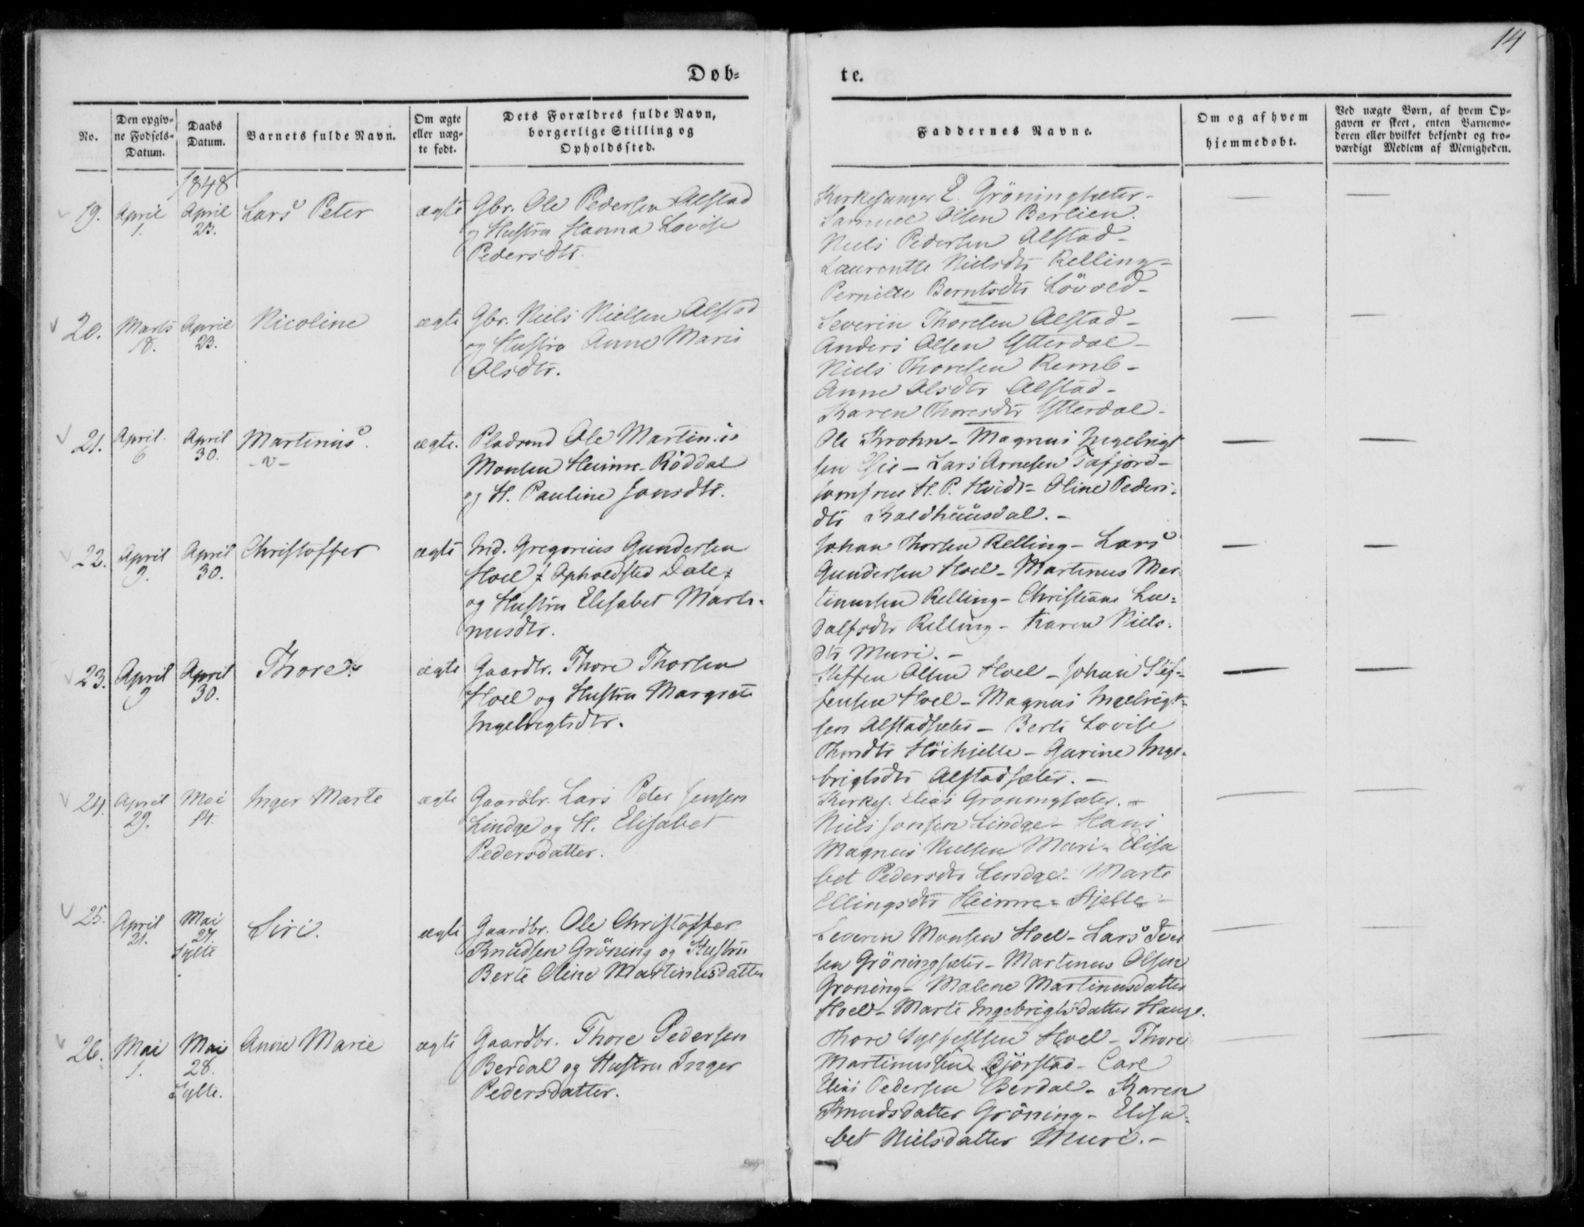 14
Døb-
te.
No.
Den opgiv-
ne Fødsels-
Datum.
Daabs
Datum.
Barnets fulde Navn.
Om ægte
eller uæg-
te født.
Dets Forældres fulde Navn,
borgerlige Stilling og
Opholdssted.
Faddernes Navne.
Om og af hvem
hjemmedøbt.
Ved uægte Børn, af hvem Op-
gaven er skeet, enten Barnemo-
deren eller hvilket bekjendt og tro-
værdigt Medlem af Menigheden.
1848
19. April 1. April 23. Lars Peter ægte
Gbr. Ole Pedersen Alstad
og Hustru Hanna Lovise
Pedersdtr.
Kirkesanger E. Gröningsæter -
Samuel Olsen Berlien.
Niels Pedersen Alstad -
Laurentse Nielsdtr Relling -
Pernille Berntsdtr Lövold -
20. Marts 18. April 23. Nicoline ægte
Gbr. Niels Nielsen Alstad
og Hustru Anne Marie
Olsdtr.
Severin Thoresen Alstad -
Anders Olsen Ytterdal -
Niels Thoresen Remb -
Anne Olsdtr Alstad -
Karen Thoresdtr Ytterdal -
21. April 6 April 30. Martinus. ægte.
-v-
Pladsmd Ole Martinus
Monsen Heimre-Röddal
og H. Pauline Jonsdtr.
Ole Krohn - Magnus Ingebrigt
sen - Lars Arnesen Tafjord -
Jomfrue H. P. Hvidt - Oline Peders-
dtr Kaldhuusdal. -
22. April 9. April 30. Christoffer ægte
Ind. Gregorius Gundersen
Hoel / Opholdsted Dale /
og Hustru Elisabet Marti-
nusdtr.
Johan Thorsen Relling - Lars
Gundersen Hoel - Martinus Mar
tinussen Relling - Christiane Lu-
dolfsdtr Relling - Karen Niels-
dtr Muri. -
23. April 9 April 30. Thore. ægte
Gaardbr. Thore Thorsen
Hoel og Hustru Margrete
Ingebrigtsdtr.
Steffen Olsen Hoel - Johan Stef-
fensen Hoel - Magnus Ingebrigt-
sen Alstadsæter - Berte Lovise
Thoresdtr Höihjelle - Gurine Inge-
brigtsdtr Alstadsæter. -
24. April 29. Mai 14. Inger Marte ægte
Gaardbr. Lars Peter Jensen
Lindge og H. Elisabet
Pedersdatter.
Kirkes. Elias Gröningsæter. -
Niels Jensen Lindge - Hans
Magnus Nielsen Muri - Elisa
bet Pedersdtr Lindge - Marte
Ellingsdtr Heimre-Hjelle -
25. April 21. Mai 27. Siri. ægte
Sylte
Gaardbr. Ole Christoffer
Knudsen Gröning og Hustru
Berte Oline Martinusdatter
Severin Monsen Hoel - Lars Iver
sen Gröningsæter - Martinus Olsen
Gröning - Malene Martinusdatter
Hoel - Marte Ingebrigtsdatter Hauge.
26. Mai 1. Mai 28. Anne Marie ægte
Sylte.
Gaardbr. Thore Pedersen
Berdal og Hustru Inger
Pedersdatter.
Thore Sylfestsen Hoel - Thore
Martinussen Björstad - Carl
Elias Pedersen Berdal - Karen
Knudsdatter Gröning - Elisa-
bet Nielsdatter Muri. -